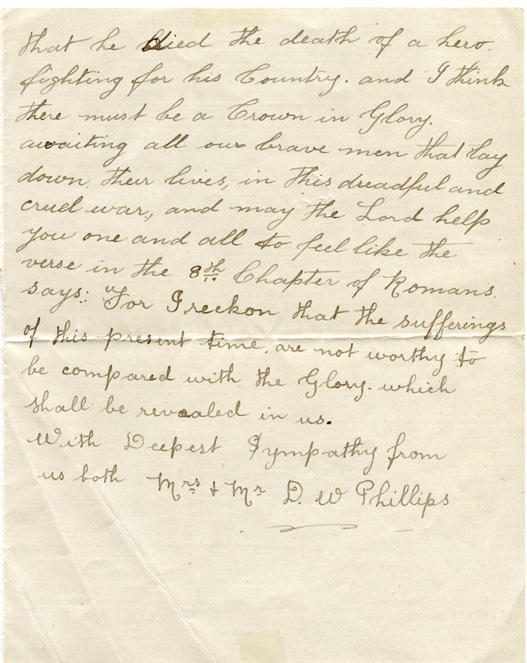 that he died the death of a hero.
fighting for his Country. and I think
there must be a Crown in Glory.
awaiting all our brave men that lay
down their lives, in this dreadful and
cruel war, and may the Lord help
you one and all to feel like the
verse in the 8th Chapter of Romans.
says: "For I reckon that the sufferings
of this present time. are not worthy to
be compared with the Glory. which
shall be revealed in us.
With Deepest Sympathy from
us both Mrs & Mr D. W Phillips